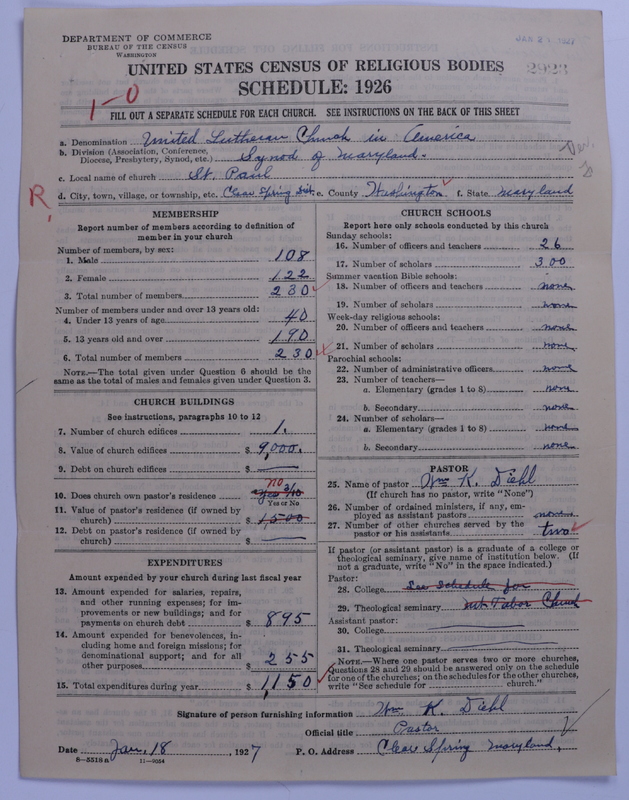 DEPARTMENT OF COMMERCE
BUREAU OF THE CENSUS
WASHINGTON
UNITED STATES CENSUS OF RELIGIOUS BODIES
2923
SCHEDULE: 1926
1-0
FILL OUT A SEPARATE SCHEDULE FOR EACH CHURCH. SEE INSTRUCTIONS ON THE BACK OF THIS SHEET
a. Denomination United Lutheran Church in America
b. Division (Association, Conference, Diocese, Presbytery, Synod, etc.) Synod of Maryland.
c. Local name of church St. Paul
R, d. City, town, village, or township, etc. Clear Spring Dist. e. County Washington f. State Maryland
MEMBERSHIP
Report number of members according to definition of
member in your church
Number of members, by sex:
1. Male 108
2. Female 122
3. Total number of members 230
Number of members under and over 13 years old:
4. Under 13 years of age 40
5. 13 years old and over 190
6. Total number of members 230
NOTE.—The total given under Question 6 should be
same as the total of males and females given under Question 3.
CHURCH BUILDINGS
See instructions, paragraphs 10 to 12
7. Number of church edifices 1.
8. Value of church edifices $ 9,000.
9. Debt on church edifices $
no
10. Does church own pastor's residence yes 3/10
Yes or No
11. Value of pastor's residence (if owned by
church) $ 1500
12. Debt on pastor's residence (if owned by
church) $
EXPENDITURES
Amount expended by your church during last fiscal year
13. Amount expended for salaries, repairs,
and other running expenses; for im-
provements or new buildings; and for
payments on church debt $ 895
14. Amount expended for benevolences, in-
cluding home and foreign missions; for
denominational support; and for all
other purposes $ 255
15. Total expenditures during year $ 1,150
CHURCH SCHOOLS
Report here only schools conducted by this church
Sunday schools:
16. Number of officers and teachers 26
17. Number of scholars 300
Summer vacation Bible schools:
18. Number of officers and teachers none
19. Number of scholars none
Week-day religious schools:
20. Number of officers and teachers none
21. Number of scholars none
Parochial schools:
22. Number of administrative officers none
23. Number of teachers—
a. Elementary (grades 1 to 8) none
b. Secondary none
24. Number of scholars—
a. Elementary (grades 1 to 8) none
b. Secondary none
PASTOR
25. Name of pastor Wm K. Diehl
(If church has no pastor, write "None")
26. Number of ordained ministers, if any, em-
ployed as assistant pastors none
27. Number of other churches served by the
pastor or his assistants two
If pastor (or assistant pastor) is a graduate of a college or
theological seminary, give name of institution below. (If
not a graduate, write "No" in the space indicated.)
Pastor:
28. College See Schedule for
29. Theological seminary Mt. Tabor Church
Assistant pastor:
30. College
31. Theological seminary
NOTE.—Where one pastor serves two or more churches,
Questions 28 and 29 should be answered only on the schedule
for one of the churches; on the schedules for the other churches,
write "See schedule for church."
Signature of person furnishing information Wm K. Diehl
Official title Pastor
Date Jan. 18, 1927 P. O. Address Clear Spring Maryland.
8—5518a 11—9054